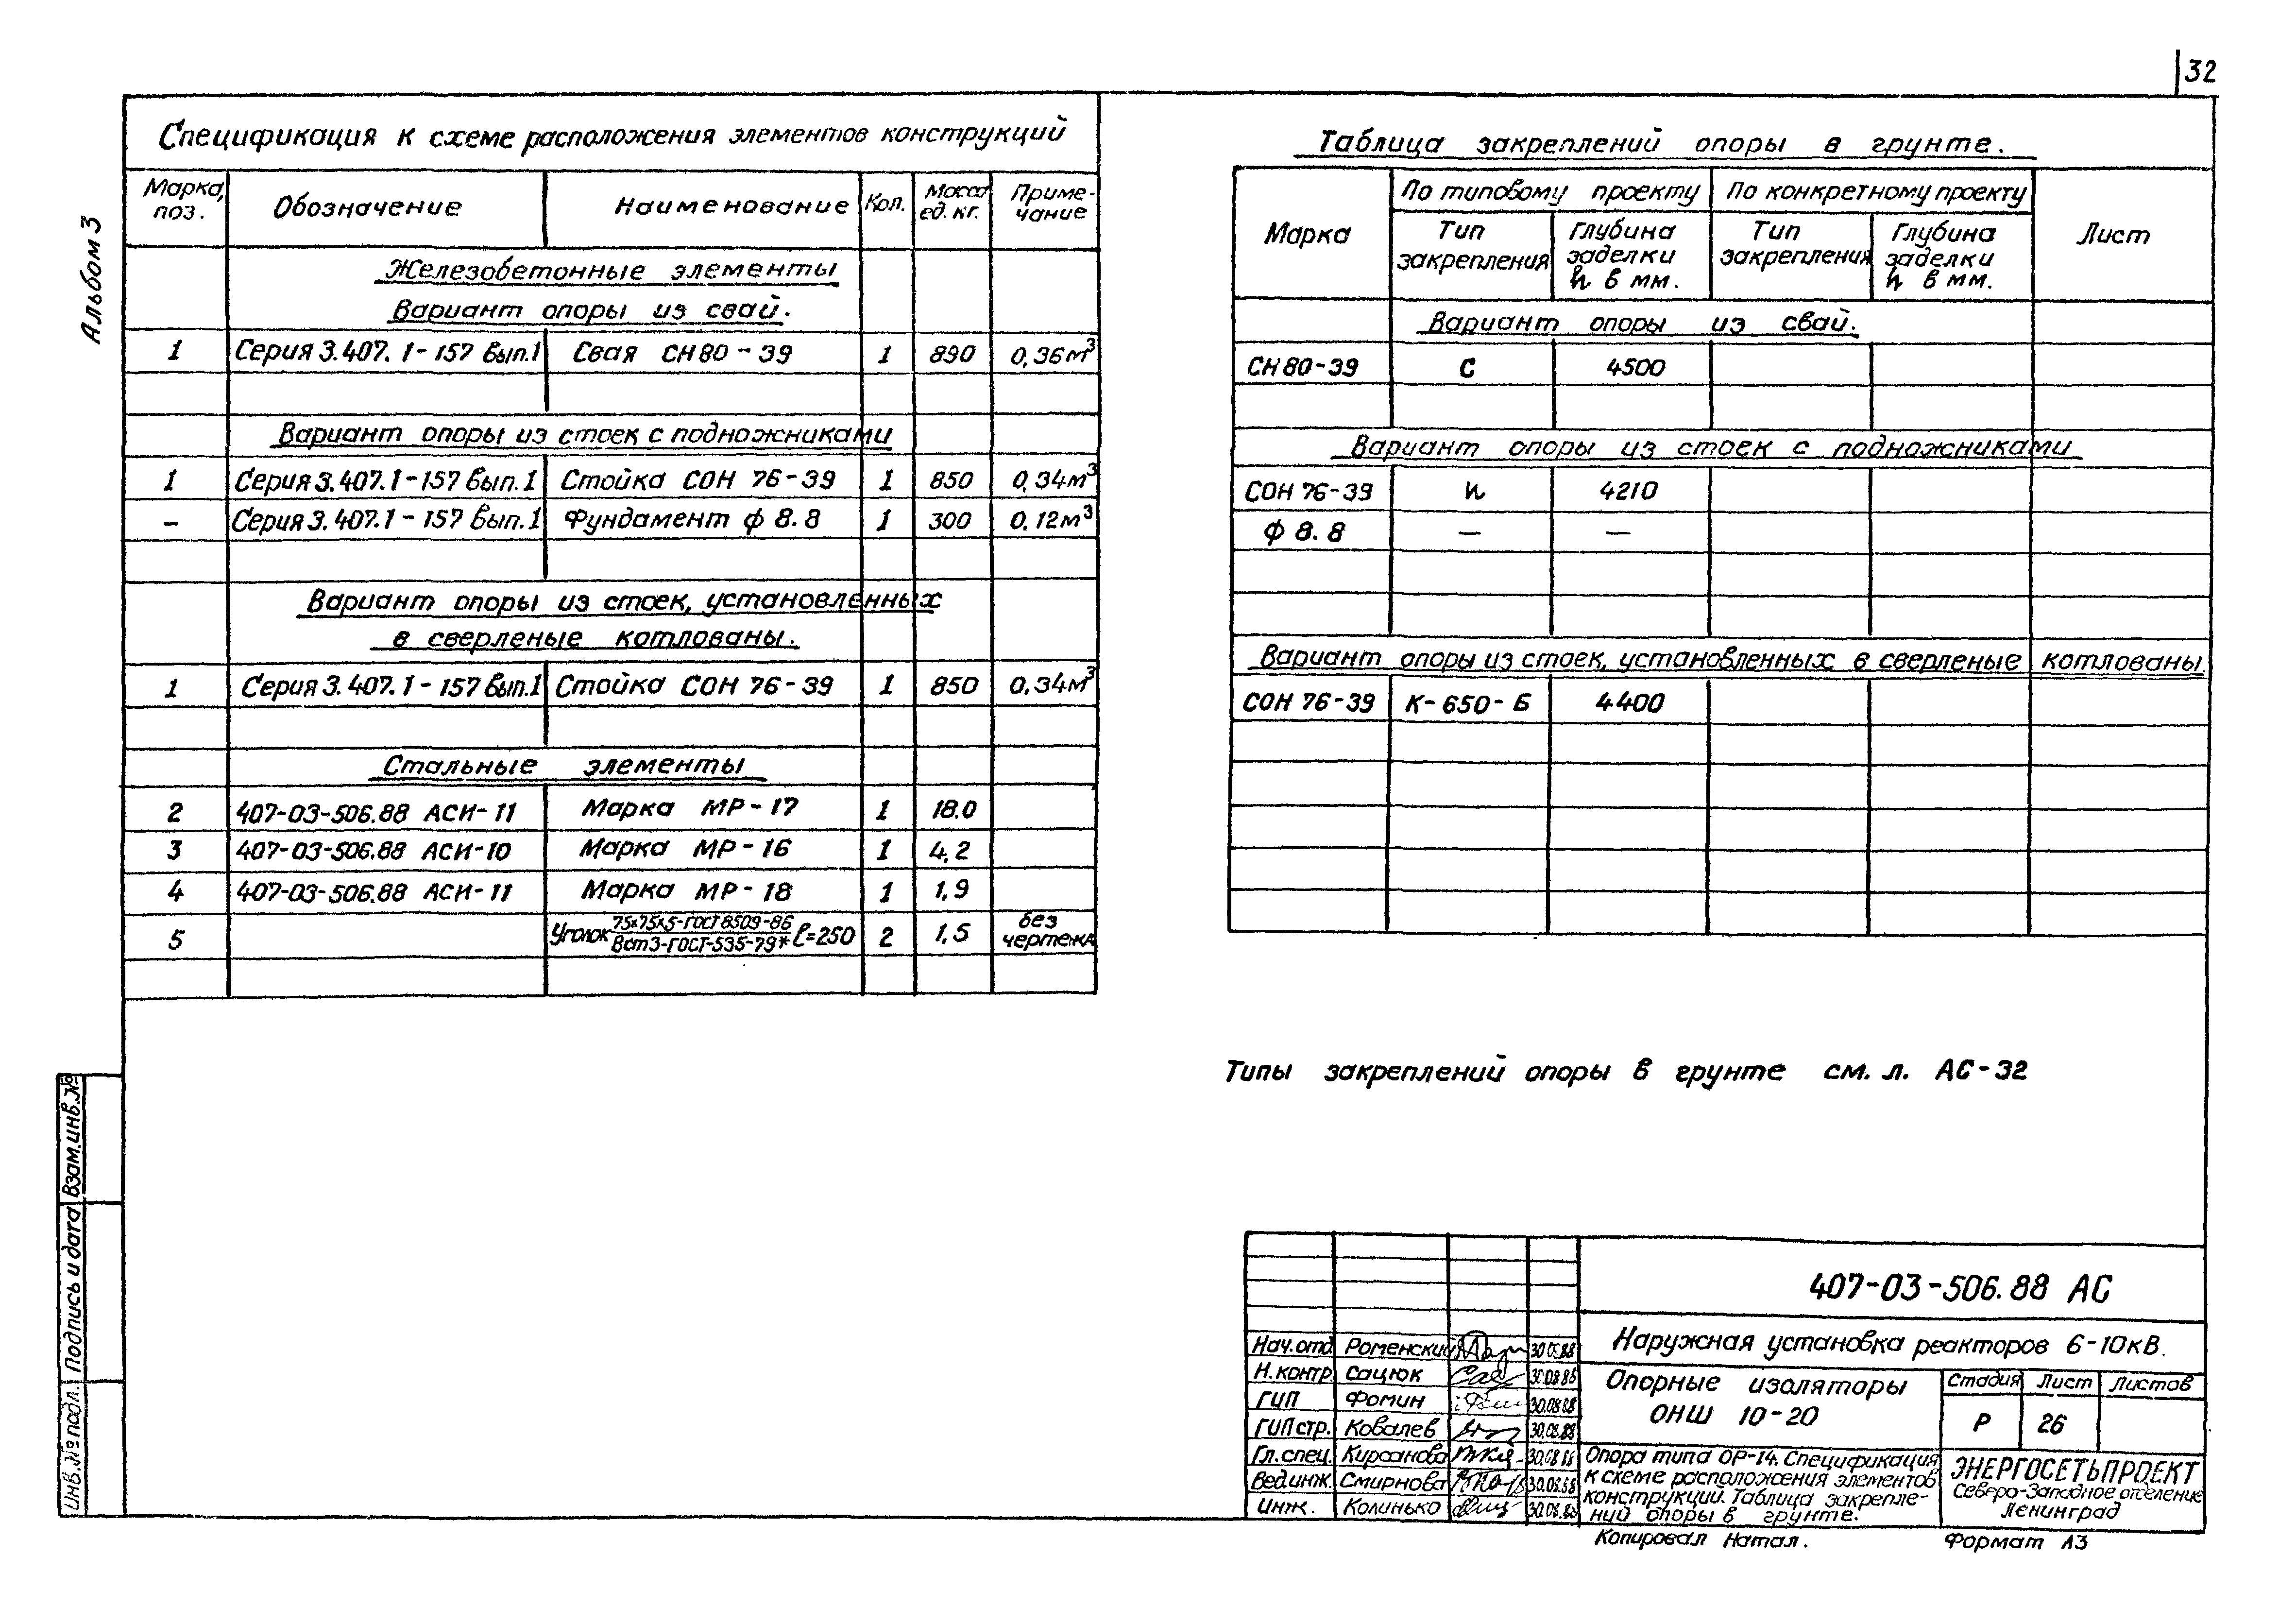 32
Альбом 3
Спецификация к схеме расположения элементов конструкций
Марка, поз. Обозначение Наименование Кол. Масса ед. кг. Приме-чание
Железобетонные элементы
Вариант опоры из свай.
1 Серия 3.407.1-157 вып.1 Свая СН80-39 1 890 0,36м³
Вариант опоры из стоек с подножниками
1 Серия 3.407.1-157 вып.1 Стойка СОН 76-39 1 850 0,34м³
– Серия 3.407.1-157 вып.1 Фундамент ф 8.8 1 300 0,12м³
Вариант опоры из стоек, установленных
в сверленые котлованы.
1 Серия 3.407.1-157 вып.1 Стойка СОН 76-39 1 850 0,34м³
Стальные элементы
2 407-03-506.88 АСИ-11 Марка МР-17 1 18.0
3 407-03-506.88 АСИ-10 Марка МР-16 1 4,2
4 407-03-506.88 АСИ-11 Марка МР-18 1 1,9
5 Уголок 75х75х5-ГОСТ 8509-86 / Вст3-ГОСТ-535-79* ℓ=250 2 1,5 без чертежа
Таблица закреплений опоры в грунте.
Марка По типовому проекту По конкретному проекту Лист
Тип закрепления Глубина заделки h в мм. Тип закрепления Глубина заделки h в мм.
Вариант опоры из свай.
СН 80-39 С 4500
Вариант опоры из стоек с подножниками
СОН 76-39 И 4210
ф 8.8 – –
Вариант опоры из стоек, установленных в сверленые котлованы.
СОН 76-39 К-650-Б 4400
Типы закреплений опоры в грунте см. л. АС-32
Инв.№подл. Подпись и дата Взам.инв.№
407-03-506.88 АС
Наружная установка реакторов 6-10кВ.
Нач.отд Роменский 30.08.88
Н.контр. Сацюк 30.08.88
ГИП Фомин 30.08.88
ГИП стр. Ковалев 30.08.88
Гл.спец. Кирсанова 30.08.88
Вед.инж. Смирнова 30.08.88
Инж. Колинько 30.08.88
Опорные изоляторы
ОНШ 10-20
Стадия Лист Листов
Р 26
Опора типа ОР-14. Спецификация
к схеме расположения элементов
конструкций. Таблица закрепле-
ний опоры в грунте.
ЭНЕРГОСЕТЬПРОЕКТ
Северо-Западное отделение
Ленинград
Копировал Натал. Формат А3